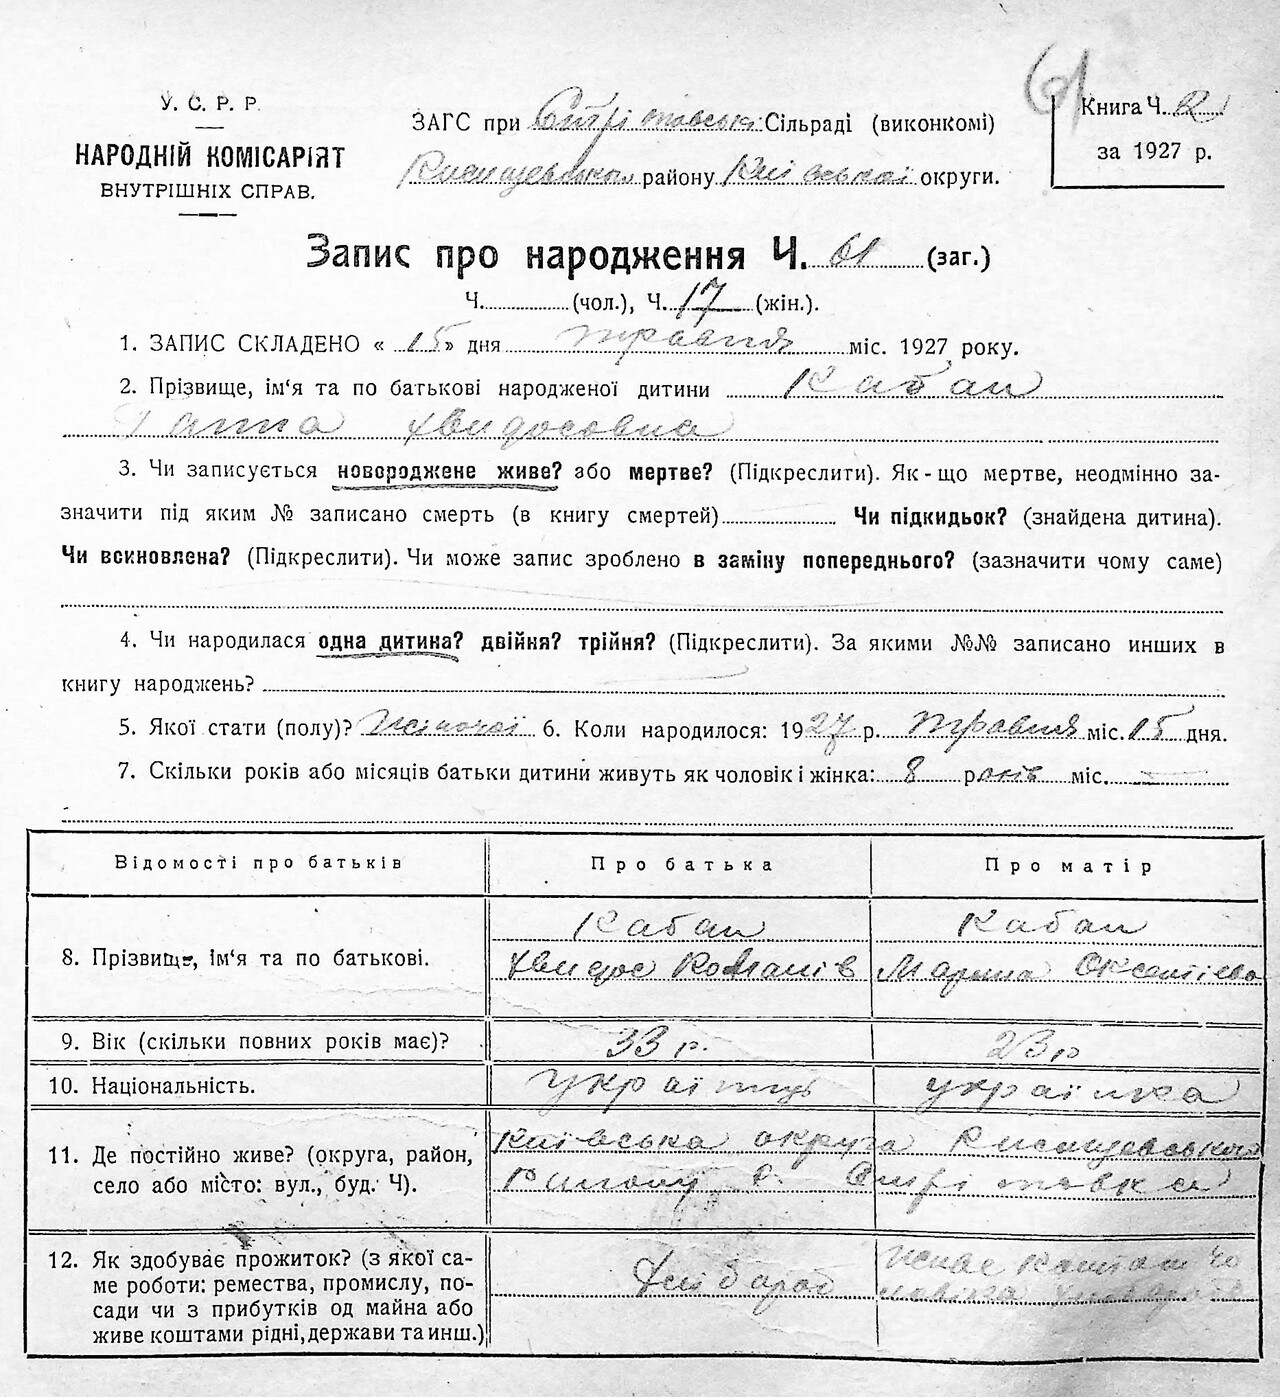 61
У. С. Р. Р.
НАРОДНІЙ КОМІСАРІЯТ
ВНУТРІШНІХ СПРАВ.
ЗАГС при Сільраді (виконкомі)
району Київської округи.
Книга Ч.
за 1927 р.
Запис про народження Ч. 61 (заг.)
Ч. (чол.), Ч. 17 (жін.).
1. ЗАПИС СКЛАДЕНО « 15 » дня травня міс. 1927 року.
2. Прізвище, ім‘я та по батькові народженої дитини Кабан
Ганна Хвидосовна
3. Чи записується новороджене живе? або мертве? (Підкреслити). Як-що мертве, неодмінно за-
значити під яким № записано смерть (в книгу смертей) Чи підкидьок? (знайдена дитина).
Чи вскновлена? (Підкреслити). Чи може запис зроблено в заміну попереднього? (зазначити чому саме)
4. Чи народилася одна дитина? двійня? трійня? (Підкреслити). За якими №№ записано инших в
книгу народжень?
5. Якої стати (полу)? жіночої 6. Коли народилося: 1927 р. травня міс. 15 дня.
7. Скільки років або місяців батьки дитини живуть як чоловік і жінка: 8 років міс. —
Відомості про батьків Про батька Про матір
8. Прізвище, ім‘я та по батькові. Кабан Кабан
Хвидос Романів Марина
9. Вік (скільки повних років має)? 33 р. 23 р
10. Національність. українць українка
11. Де постійно живе? (округа, район, Київська округа
село або місто: вул., буд. Ч). району с.
12. Як здобуває прожиток? (з якої са-
ме роботи: ремества, промислу, по- Хлібороб
сади чи з прибутків од майна або
живе коштами рідні, держави та инш.)